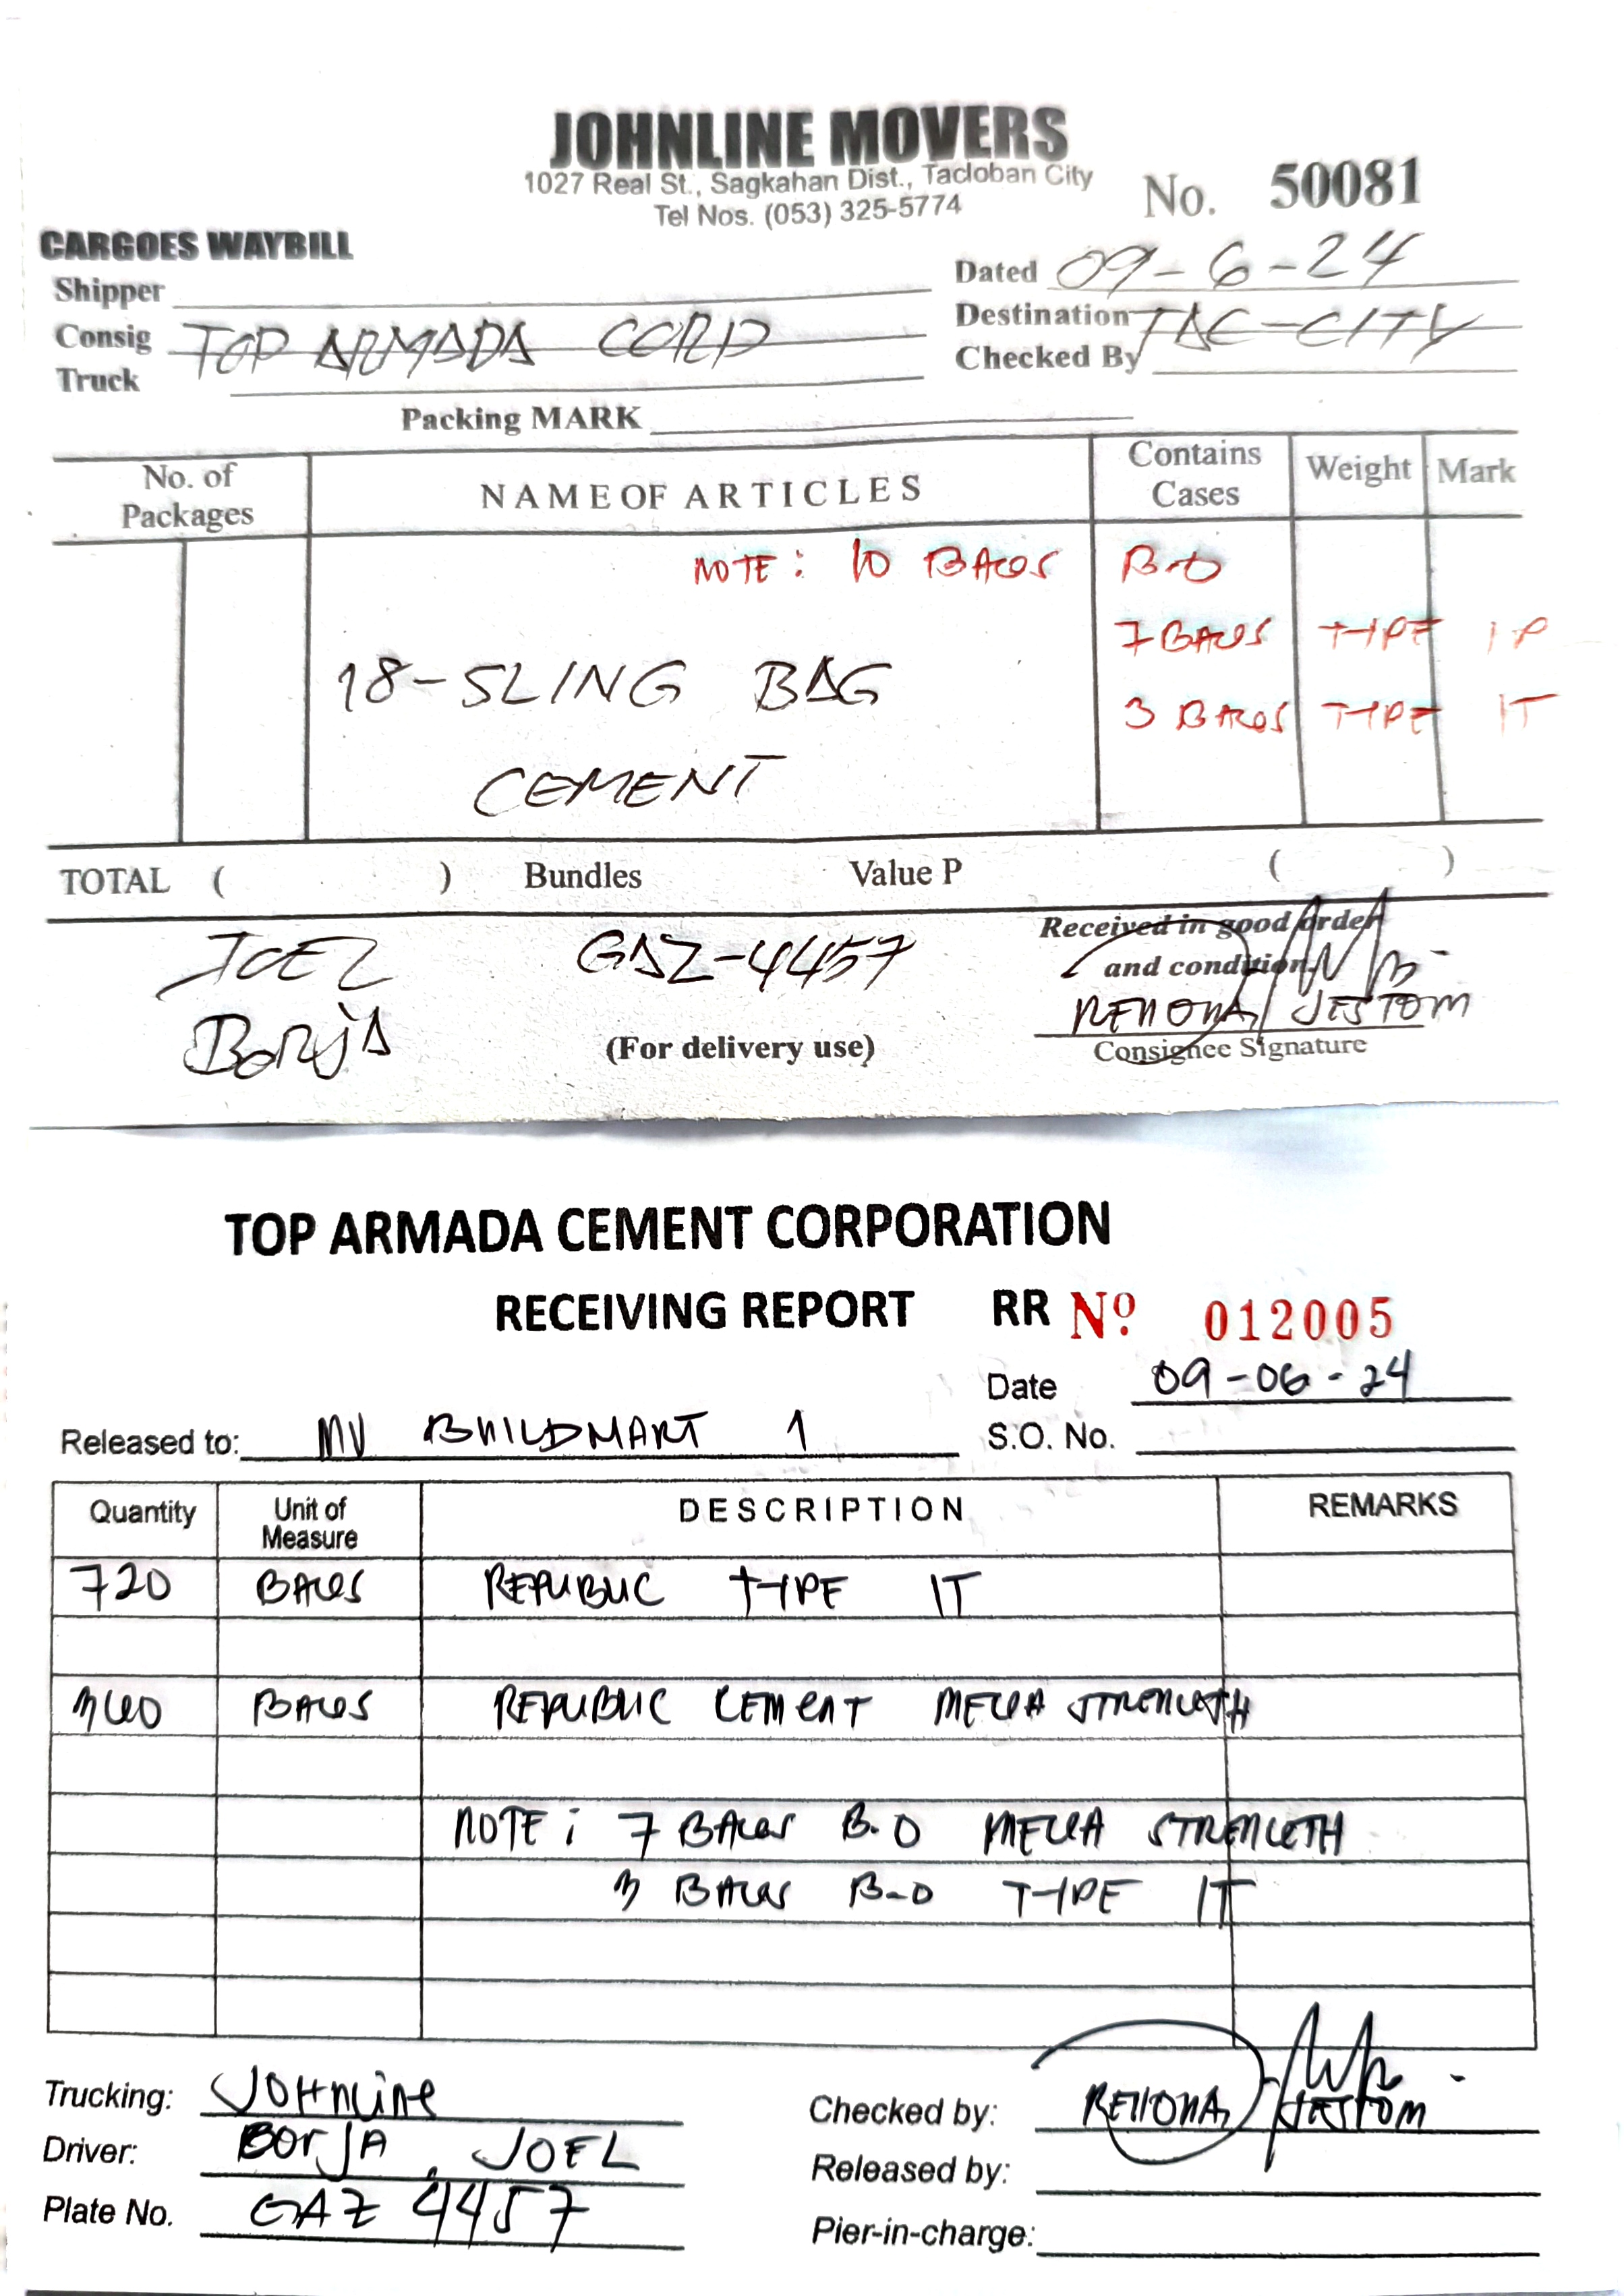 JOHNLINE MOVERS
1027 Real St., Sagkahan Dist., Tacloban City
Tel Nos. (053) 325-5774
No. 50081
CARGOES WAYBILL
Shipper
Dated 09-6-24
Consig TOP ARMADA CORP
Destination TAC-CITY
Truck
Checked By
Packing MARK
No. of Packages NAME OF ARTICLES Contains Cases Weight Mark
NOTE: 10 BAGS B.O
7 BAGS TYPE 1P
18-SLING BAG
3 BAGS TYPE 1T
CEMENT
TOTAL ( ) Bundles Value P ( )
JOEL GAZ-4457 Received in good order
and condition
BORJA (For delivery use) JESTOM
Consignee Signature
TOP ARMADA CEMENT CORPORATION
RECEIVING REPORT RR Nº 012005
Date 09-06-24
Released to: MV BUILDMART 1 S.O. No.
Quantity Unit of Measure DESCRIPTION REMARKS
720 BAGS REPUBLIC TYPE 1T
BAGS REPUBLIC CEMENT MEGA STRENGTH
NOTE: 7 BAGS B.O MEGA STRENGTH
3 BAGS B.O TYPE 1T
Trucking: JOHNLINE Checked by: JESTOM
Driver: BORJA, JOEL Released by:
Plate No. GAZ 4457 Pier-in-charge: